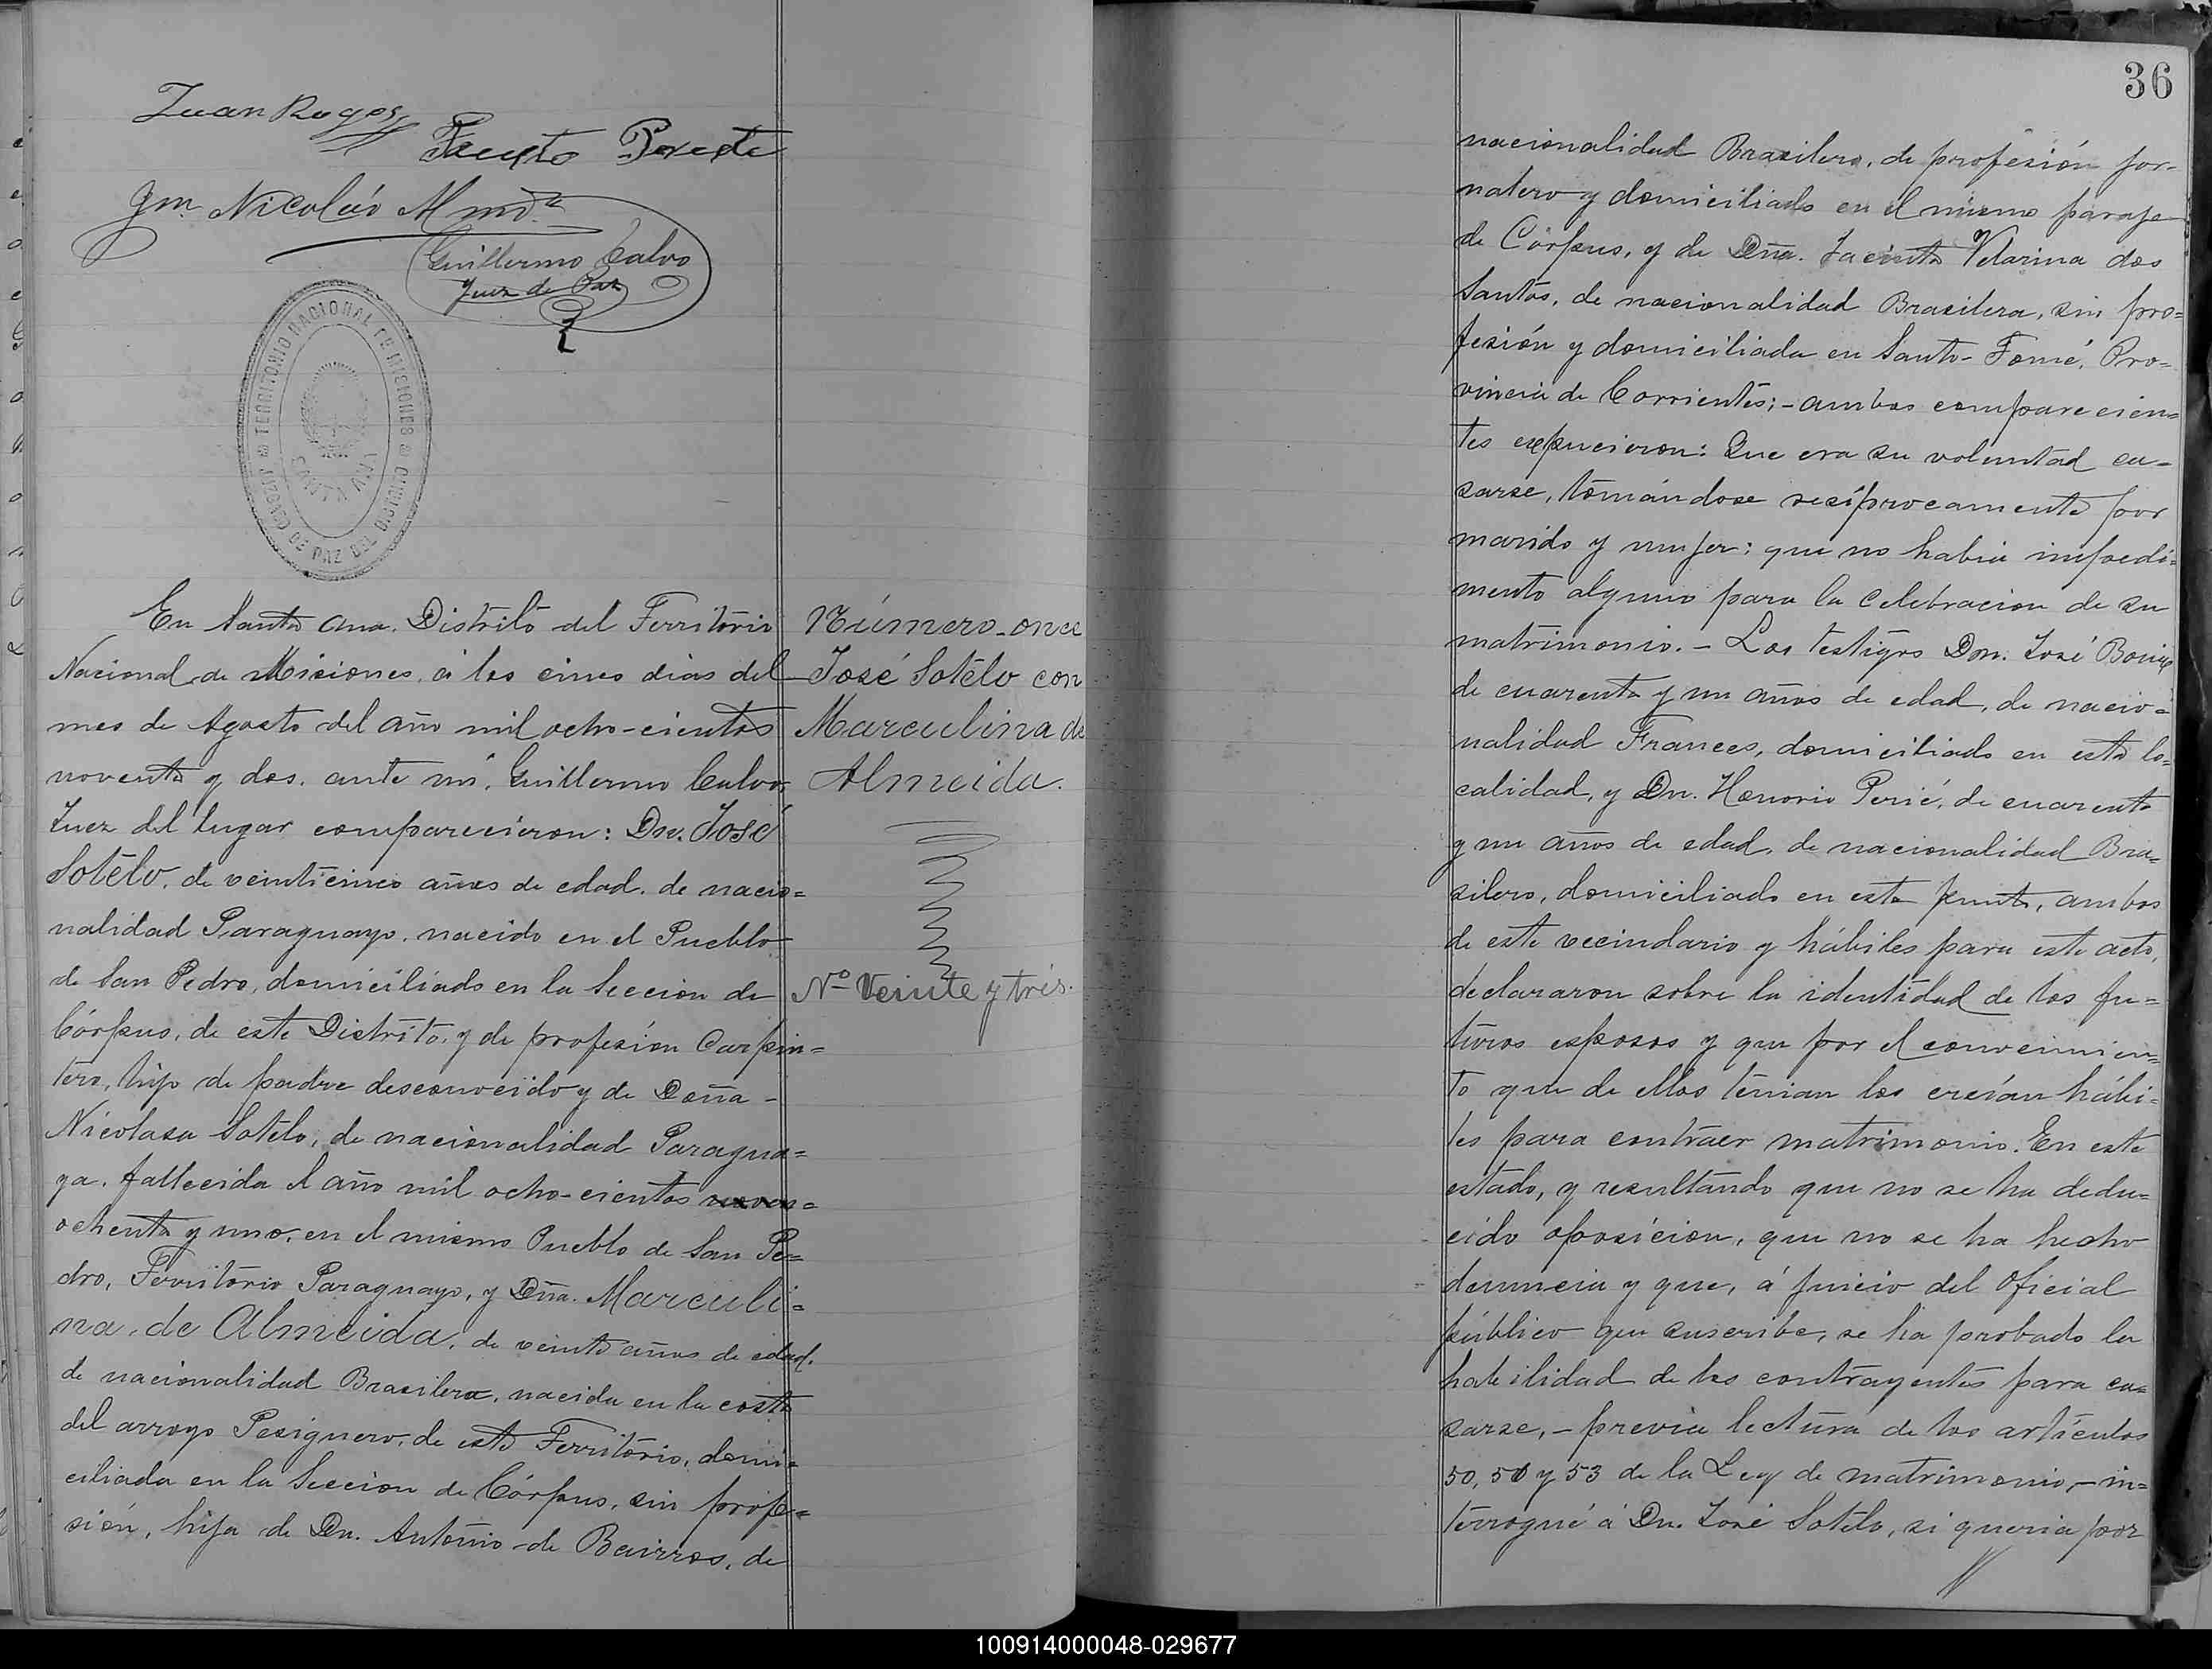 Juan Rogos
Fausto Poxete
Gmo Nicolás
Guillermo Calvo
Juez de Paz
JUZGADO DE PAZ DEL TERRITORIO NACIONAL DE MISIONES
SANTA ANA
En Santa Ana, Distrito del Territorio
Nacional de Misiones, á los cinco dias del
mes de Agosto del año mil ocho-cientos
noventa y dos, ante mí, Guillermo Calvo,
Juez del lugar comparecieron: Dn. José
Sotélo, de veinticinco años de edad, de nacio=
nalidad Paraguayo, nacido en el Pueblo
de San Pedro, domiciliado en la Seccion de
Córpus, de este Distrito, y de profesión Carpin=
tero, hijo de padre desconocido y de Doña -
Nicolasa Sotelo, de nacionalidad Paragua=
ya, fallecida el año mil ocho-cientos noven=
ochenta y uno, en el mismo Pueblo de San Pe=
dro, Territorio Paraguayo, y Dña. Marculi=
na de Almeida, de veinte años de edad,
de nacionalidad Brasilera, nacida en la costa
del arroyo Pesiguero, de este Territorio, domi=
ciliada en la Seccion de Córpus, sin profe=
sión, hija de Dn. Antonio de Bairros, de
Número once
José Sotélo con
Marculina de
Almeida.
No Veinte y trés.
36
nacionalidad Brasilero, de profesión jor-
nalero y domiciliado en el mismo paraje
de Córpus, y de Dña. Jacinta Velarina dos
Santos, de nacionalidad Brasilera, sin pro=
fesión y domiciliada en Santo-Tomé, Pro=
vincia de Corrientes; - ambos comparecien=
tes expucieron: Que era su voluntad ca=
sarse, tomándose recíprocamente por
marido y mujer; que no habia impedi=
mento alguno para la celebracion de su
matrimonio. - Los testigos Don. José
de cuarenta y un años de edad, de nacio=
nalidad Frances, domiciliado en esta lo=
calidad, y Dn. Honorio Perié, de cuarenta
y un años de edad, de nacionalidad Bra=
silero, domiciliado en este punto, ambos
de este vecindario y hábiles para este acto,
declararon sobre la identidad de los fu=
turos esposos y que por el conocimien=
to que de ellos tenian los creían hábi=
les para contraer matrimonio. En este
estado, y resultando que no se ha dedu=
cido oposicion, que no se ha hecho
denuncia y que, á juicio del Oficial
público que suscribe, se ha probado la
habilidad de los contrayentes para ca=
sarse, - previa lectura de los artículos
50, 51 y 53 de la Ley de matrimonio, - in=
terrogué á Dn. José Sotélo, si queria por
100914000048-029677